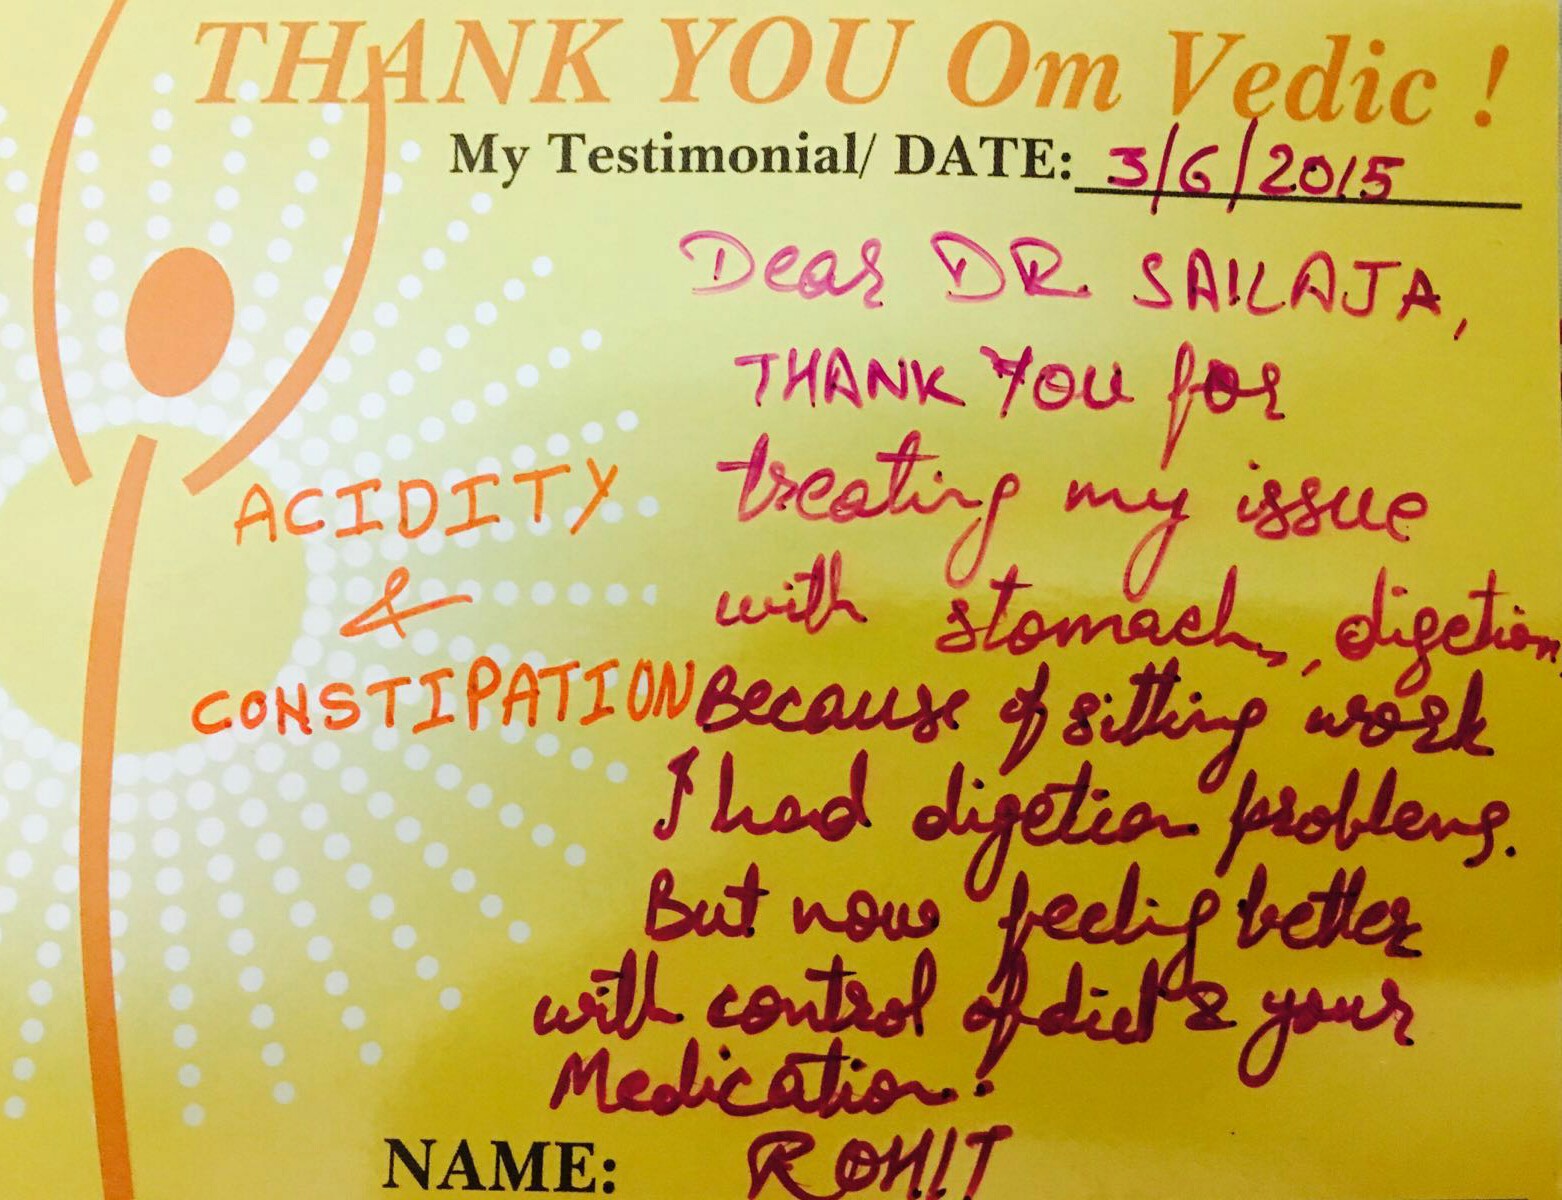 THANK YOU Om Vedic !
My Testimonial/ DATE: 3/6/2015
Dear DR. SAILAJA,
THANK YOU for
treating my issue
with stomach, digetion
Because of sitting work
I had digetion problems.
But now feelig better
with control of diet & your
Medication.
ACIDITY
&
CONSTIPATION
NAME: ROHIT